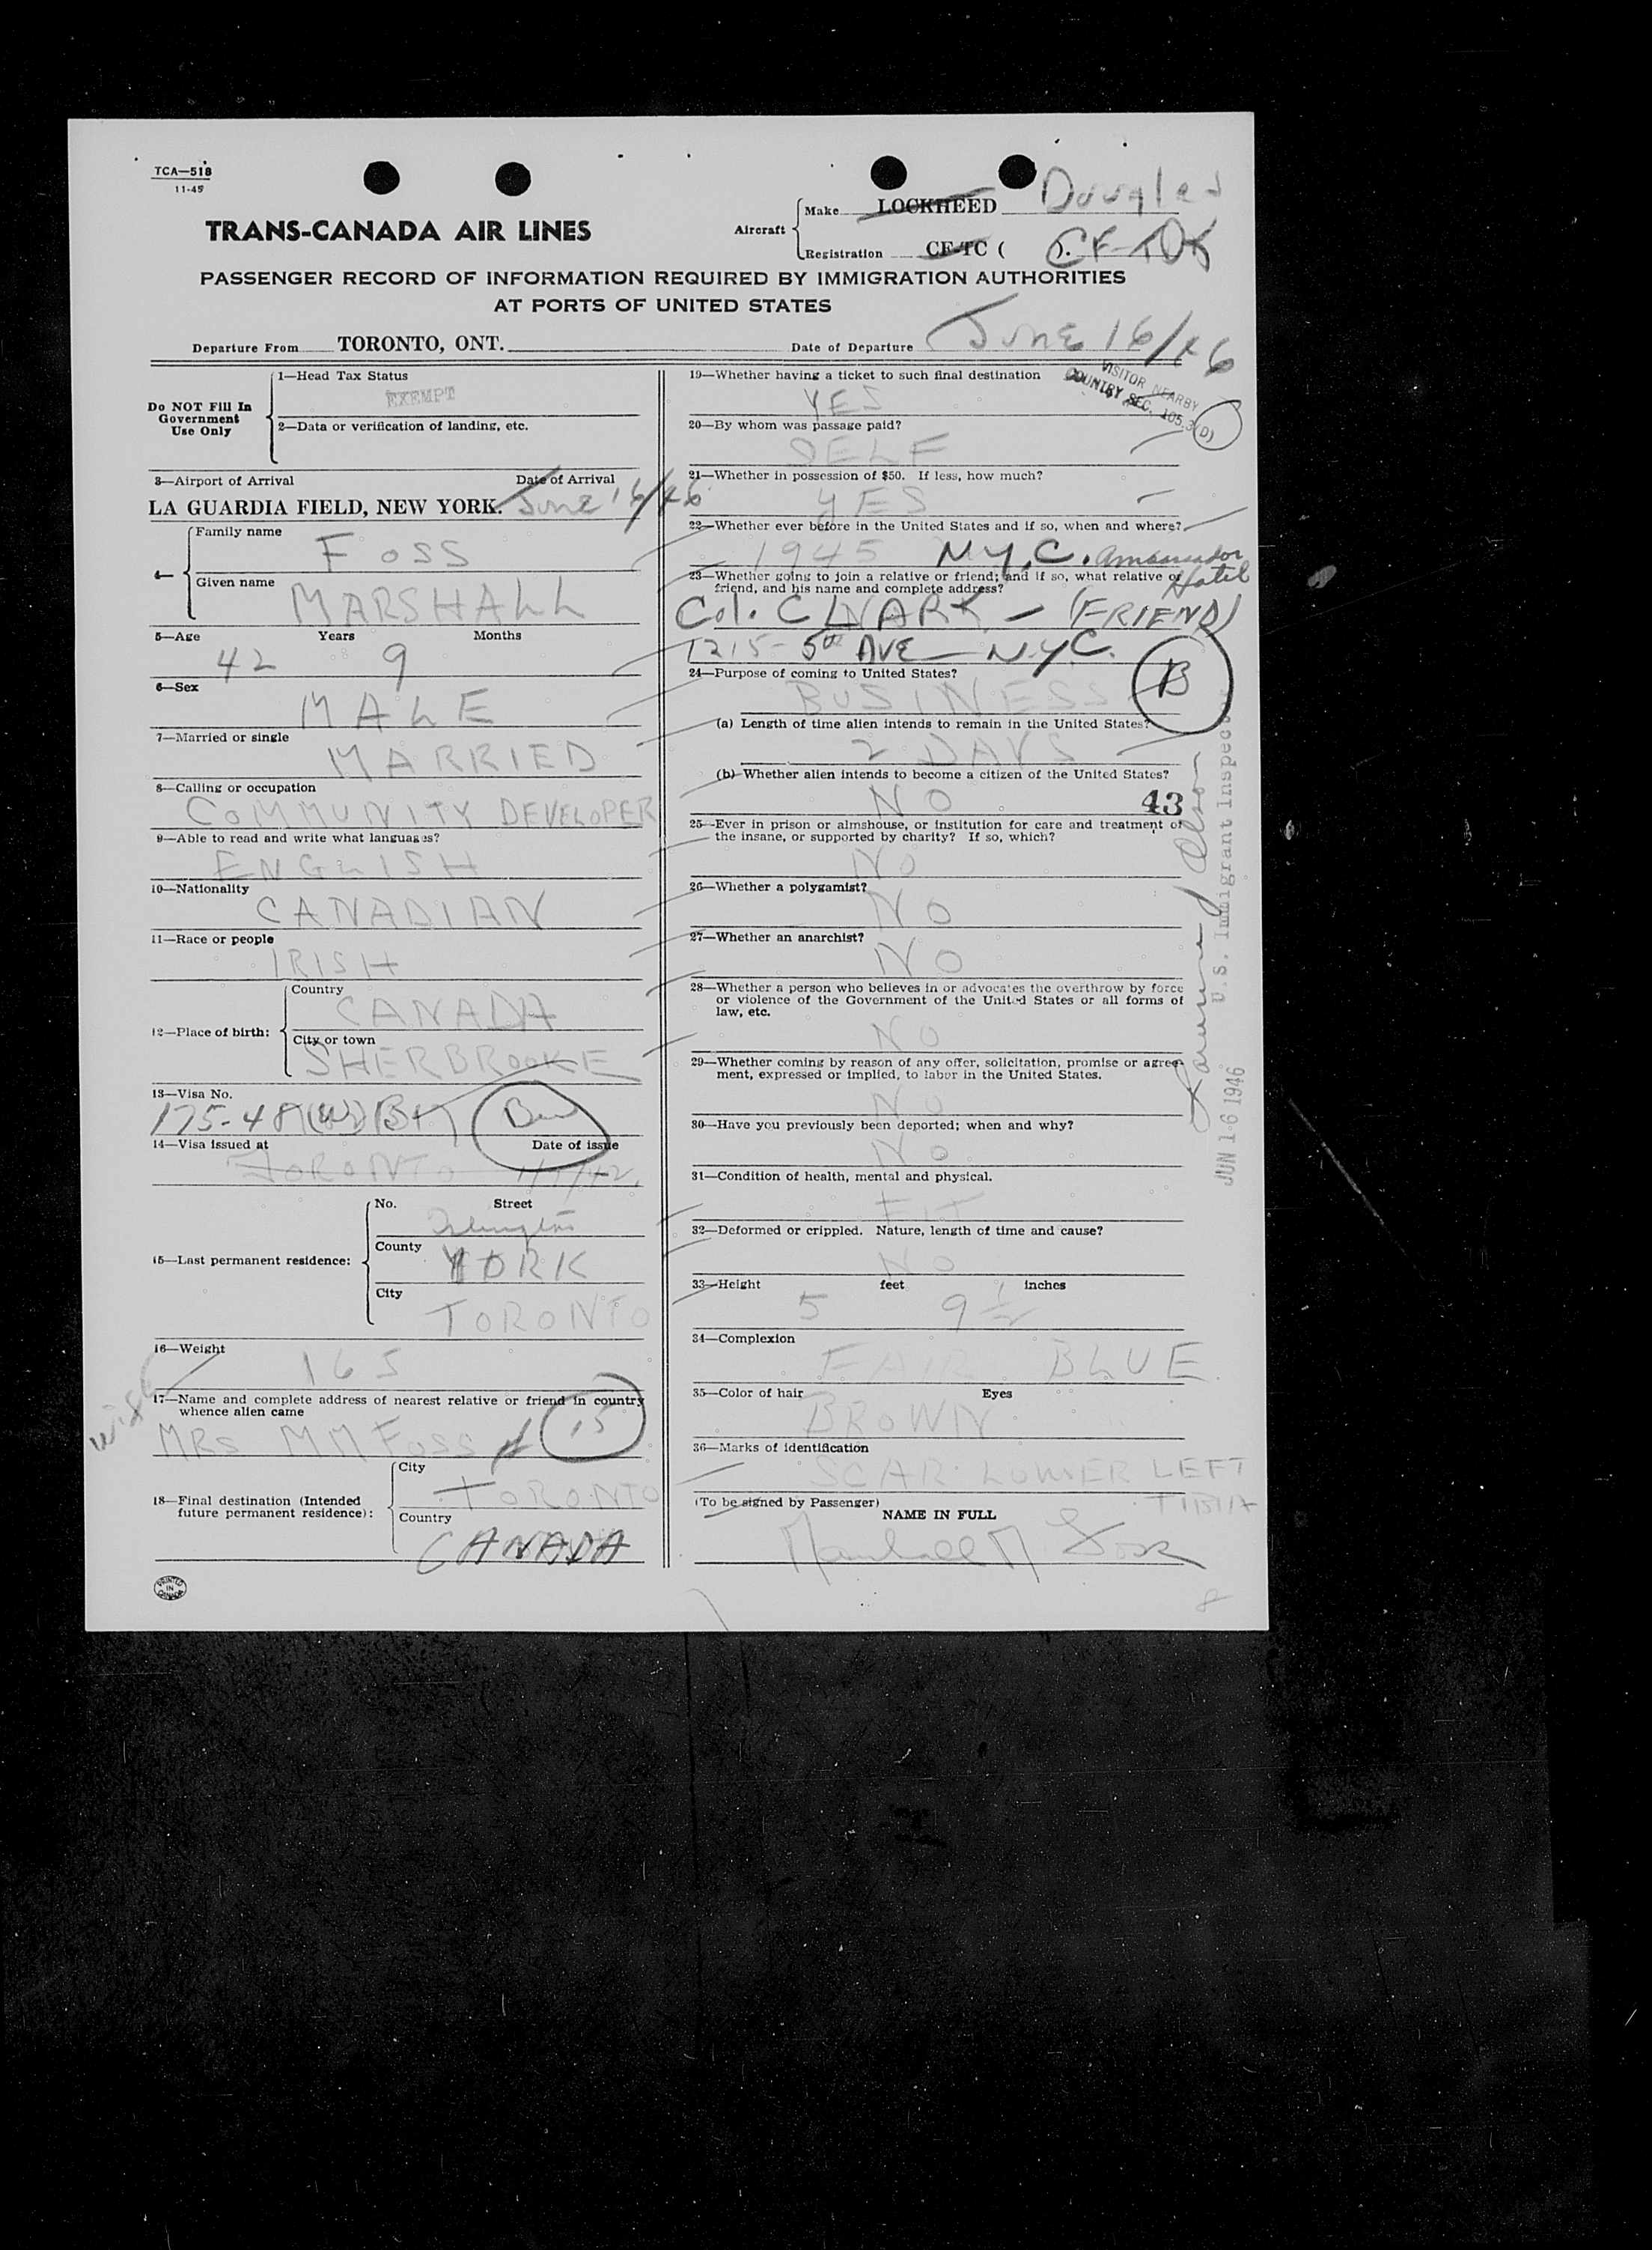 TCA—518
11-45
TRANS-CANADA AIR LINES
Aircraft
Make LOCKHEED Douglas
Registration CF-TC ( ). CF-TDK
PASSENGER RECORD OF INFORMATION REQUIRED BY IMMIGRATION AUTHORITIES
AT PORTS OF UNITED STATES
Departure From TORONTO, ONT.
Date of Departure June 16/46
Do NOT Fill In
Government
Use Only
1—Head Tax Status
EXEMPT
2—Data or verification of landing, etc.
3—Airport of Arrival Date of Arrival
LA GUARDIA FIELD, NEW YORK. June 16/46
4—
Family name
FOSS
Given name
MARSHALL
5—Age Years Months
42 9
6—Sex
MALE
7—Married or single
MARRIED
8—Calling or occupation
COMMUNITY DEVELOPER
9—Able to read and write what languages?
ENGLISH
10—Nationality
CANADIAN
11—Race or people
IRISH
12—Place of birth:
Country
CANADA
City or town
SHERBROOKE
13—Visa No.
175-48
14—Visa issued at Date of issue
TORONTO
15—Last permanent residence:
No. Street
County
YORK
City
TORONTO
16—Weight
165
wife
17—Name and complete address of nearest relative or friend in country
whence alien came
MRS M M FOSS 15
18—Final destination (Intended
future permanent residence):
City
TORONTO
Country
CANADA
PRINTED
IN
CANADA
19—Whether having a ticket to such final destination
YES
VISITOR NEARBY
COUNTRY SEC. 105.3(D)
20—By whom was passage paid?
SELF
21—Whether in possession of $50. If less, how much?
YES
22—Whether ever before in the United States and if so, when and where?
1945 N.Y.C. Ambassador
Hotel
23—Whether going to join a relative or friend; and if so, what relative or
friend, and his name and complete address?
Col. C (FRIEND)
1215- 5th AVE N.Y.C.
24—Purpose of coming to United States?
BUSINESS B
(a) Length of time alien intends to remain in the United States?
2 DAYS
(b) Whether alien intends to become a citizen of the United States?
NO 43
25—Ever in prison or almshouse, or institution for care and treatment of
the insane, or supported by charity? If so, which?
NO
26—Whether a polygamist?
NO
27—Whether an anarchist?
NO
28—Whether a person who believes in or advocates the overthrow by force
or violence of the Government of the United States or all forms of
law, etc.
NO
29—Whether coming by reason of any offer, solicitation, promise or agree-
ment, expressed or implied, to labor in the United States.
NO
30—Have you previously been deported; when and why?
NO
31—Condition of health, mental and physical.
FIT
32—Deformed or crippled. Nature, length of time and cause?
NO
33—Height feet inches
5 9 1/2
34—Complexion
FAIR BLUE
35—Color of hair Eyes
BROWN
36—Marks of identification
SCAR LOWER LEFT
TIBIA
(To be signed by Passenger)
NAME IN FULL
Marshall M Foss
U.S. Immigrant Inspector
JUN 16 1946